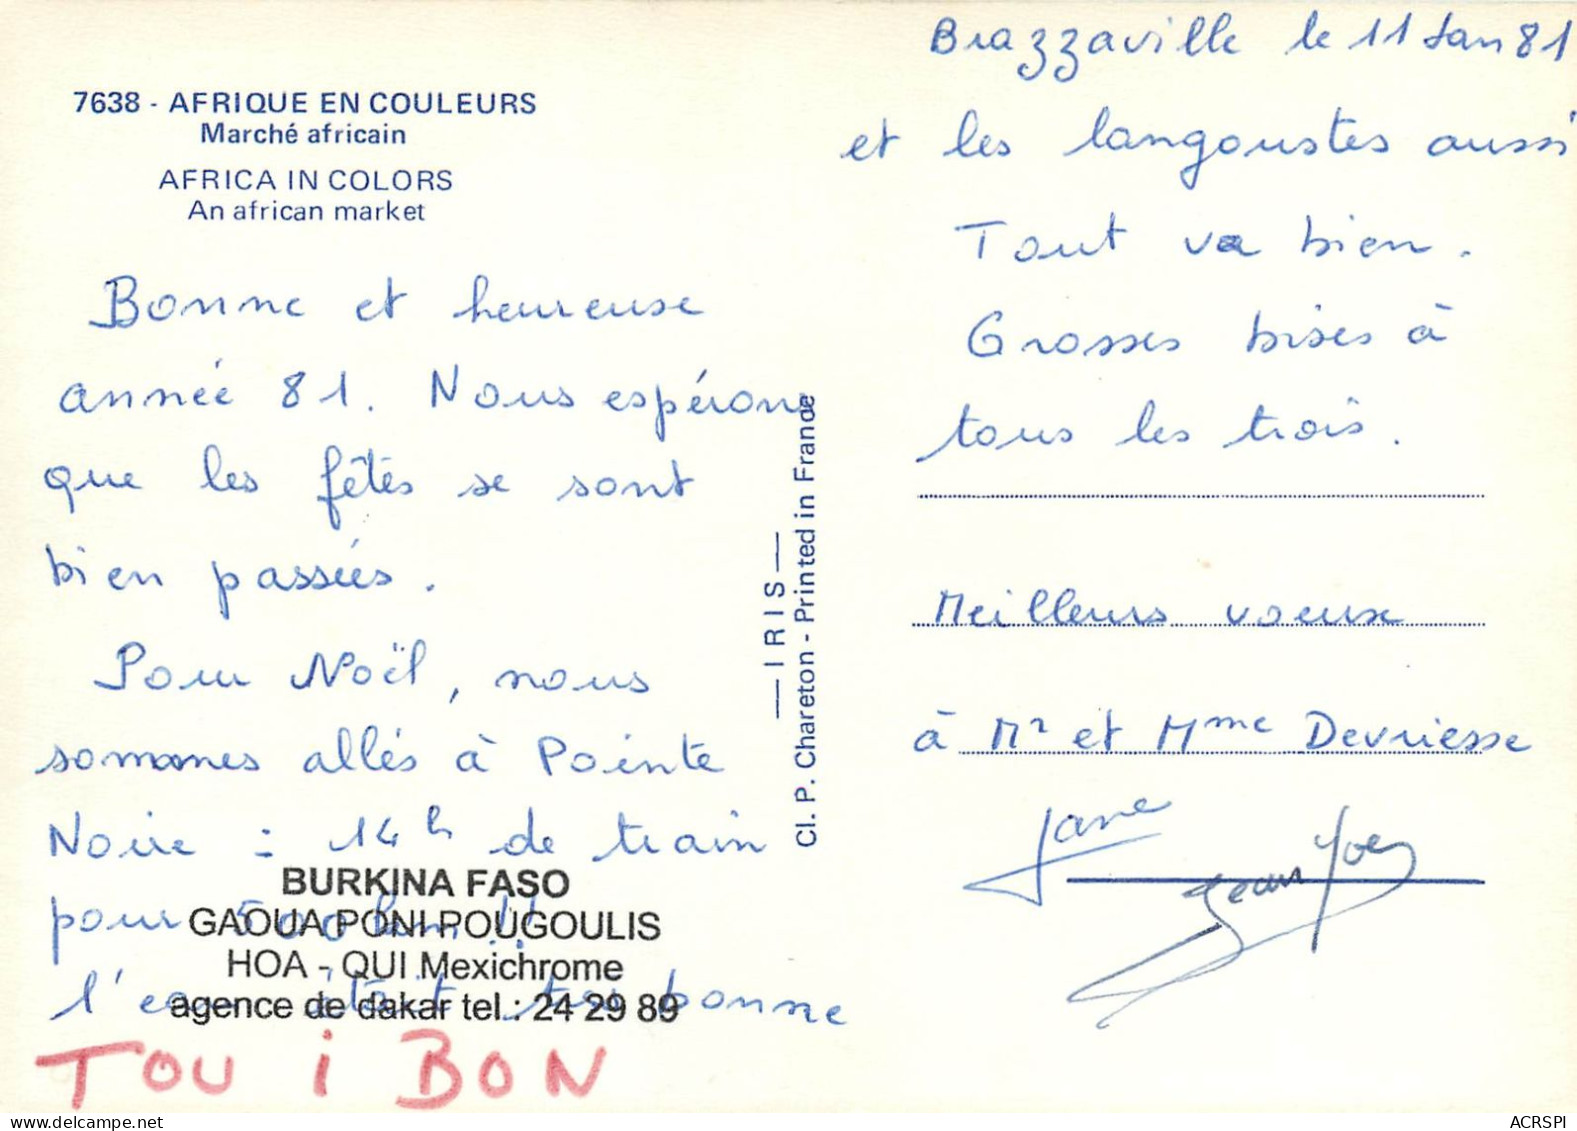 7638 - AFRIQUE EN COULEURS
Marché africain
AFRICA IN COLORS
An african market
Bonne et heureuse
année 81. Nous espérons
que les fêtes se sont
bien passées.
Pour Noël, nous
sommes allés à Pointe
Noire : 14h de train
pour 500 km !!
l'eau était très bonne
BURKINA FASO
GAOUA PONI POUGOULIS
HOA - QUI Mexichrome
agence de dakar tel.: 24 29 89
TOU i BON
— IRIS —
Cl. P. Chareton - Printed in France
Brazzaville le 11 Jan 81
et les langoustes aussi
Tout va bien.
Grosses bises à
tous les trois.
Meilleurs voeux
à Mr et Mme Devriesse
Jane
Jean Yves
ACRSPI